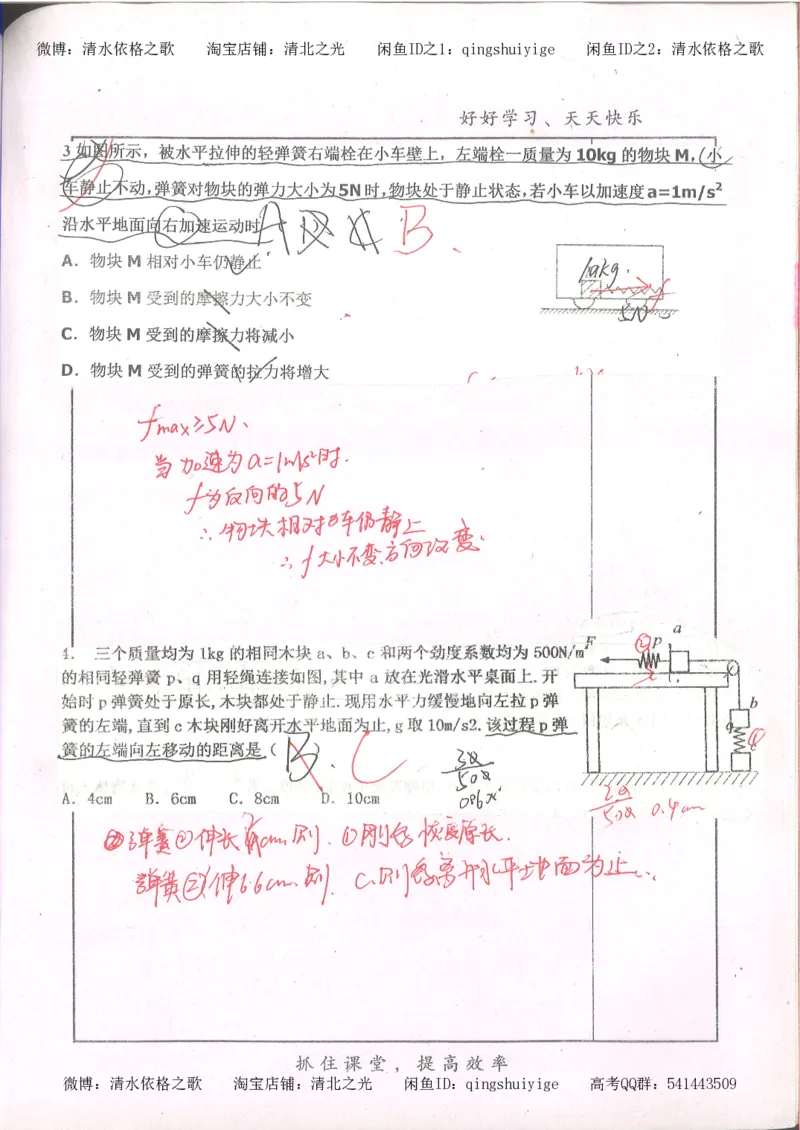 微博：清水依格之歌 淘宝店铺：清北之光 闲鱼ID之1：qingshuiyige 闲鱼ID之2：清水依格之歌
好好学习、天天快乐
3 如图所示，被水平拉伸的轻弹簧右端栓在小车壁上，左端栓一质量为10kg的物块M，小
车静止不动，弹簧对物块的弹力大小为5N时，物块处于静止状态，若小车以加速度a=1m/s²
沿水平地面向右加速运动时
B
A．物块M相对小车仍静止
B．物块M受到的摩擦力大小不变
C．物块M受到的摩擦力将减小
D．物块M受到的弹簧的拉力将增大
10kg
5N
f
fmax≥5N、
当加速为a=1m/s²时．
f为反向的5N
∴物块相对小车仍静止
∴f大小不变，方向改变．
4． 三个质量均为1kg的相同木块a、b、c和两个劲度系数均为500N/m
的相同轻弹簧p、q用轻绳连接如图,其中a放在光滑水平桌面上.开
始时p弹簧处于原长,木块都处于静止.现用水平力缓慢地向左拉p弹
簧的左端,直到c木块刚好离开水平地面为止,g取10m/s2.该过程p弹
簧的左端向左移动的距离是（
B． C
F p a
b
q
A．4cm B．6cm C．8cm D．10cm
0.4cm
弹簧②伸长 cm 则．①刚好恢复原长．
弹簧②伸 cm 则．C刚好离开水平地面为止
抓住课堂，提高效率
微博：清水依格之歌 淘宝店铺：清北之光 闲鱼ID：qingshuiyige 高考QQ群：541443509